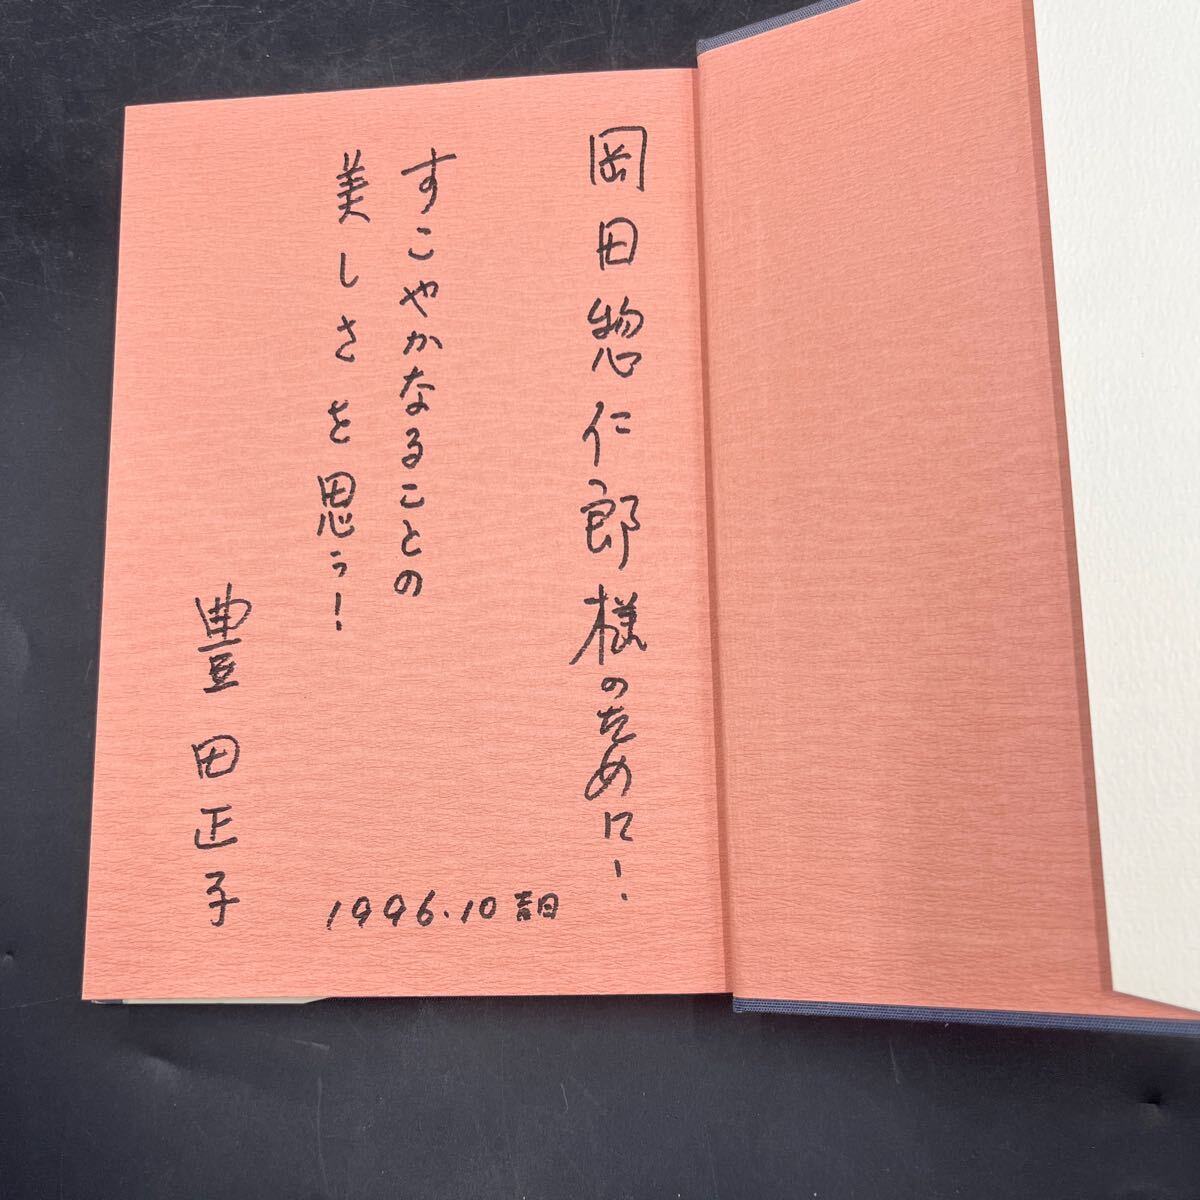 岡田惣仁郎様のために！
すこやかなることの
美しさを思う！
豊田正子
1996.10吉日